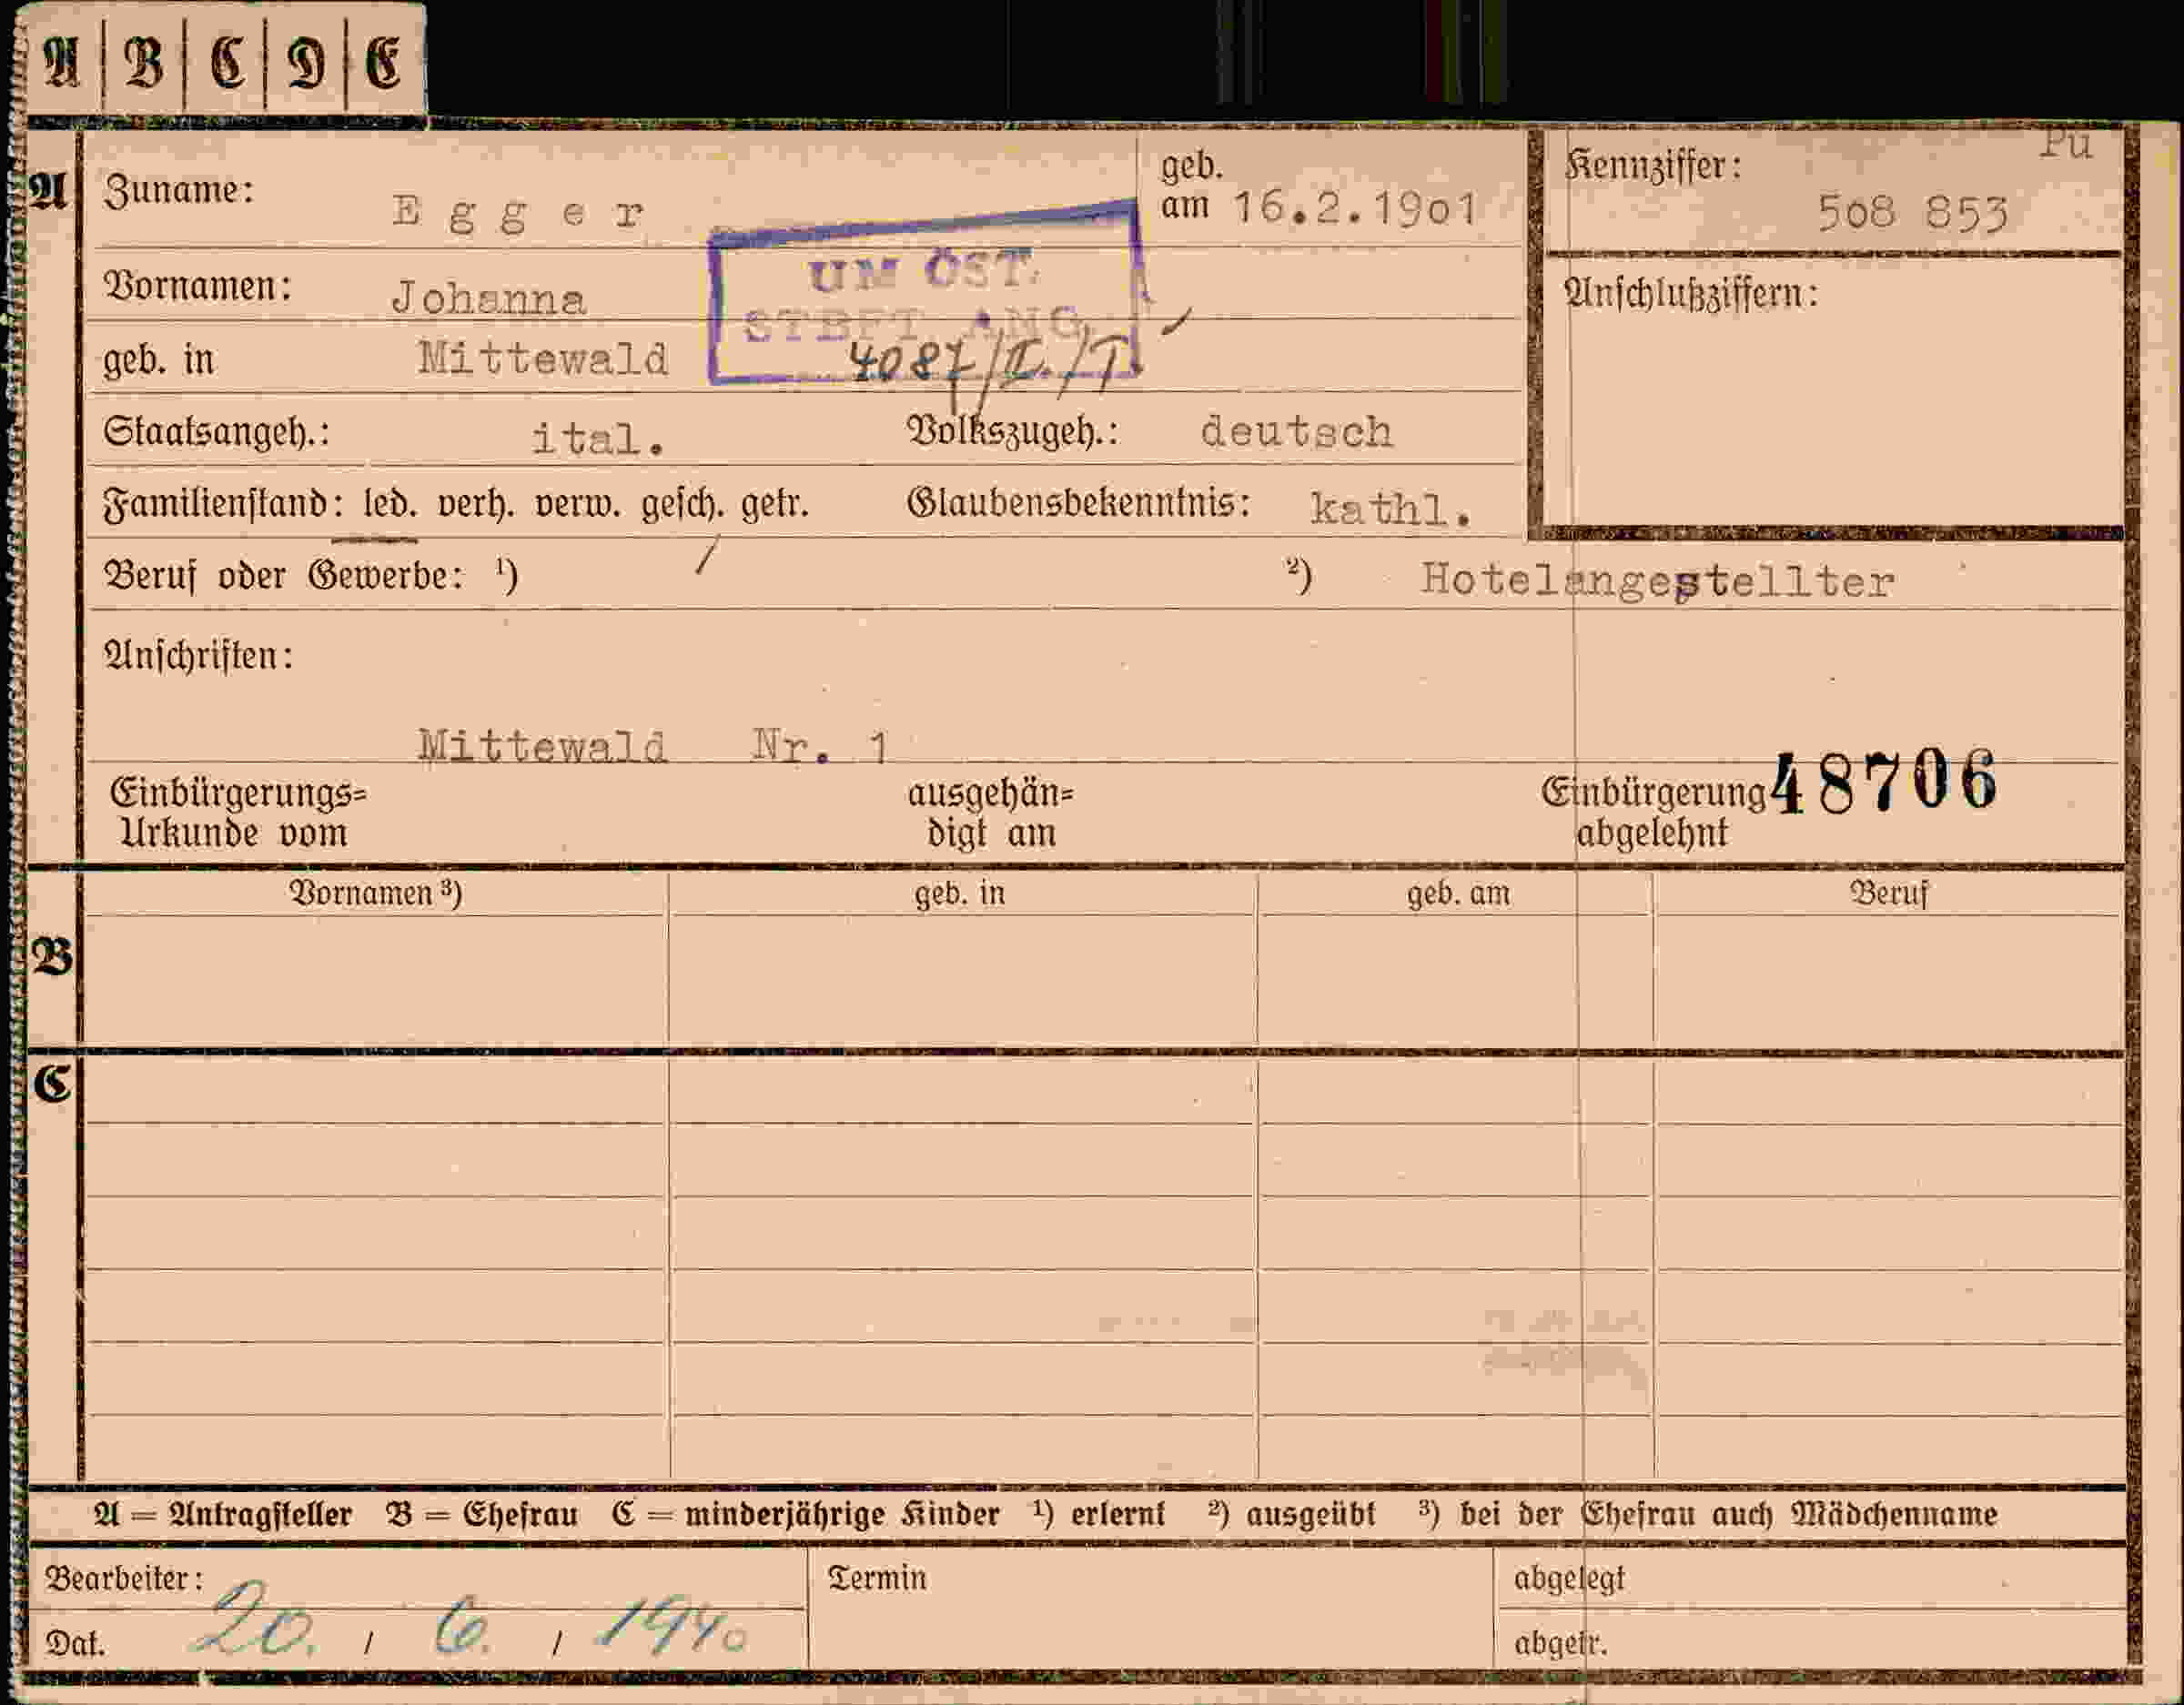 A B C D E
Pu
A Zuname: Egger geb. am 16.2.19o1 Kennziffer: 5o8 853
Vornamen: Johanna Anschlußziffern:
UM ÖST.
STBFT. ANG.
4087/II./T.
geb. in Mittewald
Staatsangeh.: ital. Volkszugeh.: deutsch
Familienstand: led. verh. verw. gesch. getr. Glaubensbekenntnis: kathl.
Beruf oder Gewerbe: ¹) / ²) Hotelangestellter
Anschriften:
Mittewald Nr. 1
Einbürgerungs= ausgehän= Einbürgerung 48706
Urkunde vom digt am abgelehnt
Vornamen ³) geb. in geb. am Beruf
B
C
A = Antragsteller B = Ehefrau C = minderjährige Kinder ¹) erlernt ²) ausgeübt ³) bei der Ehefrau auch Mädchenname
Bearbeiter: Termin abgelegt
Dat. 20. / 6. / 1940 abgetr.